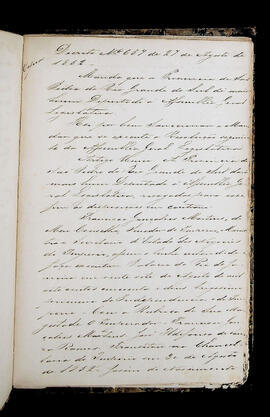 Decreto Nº 657 de 27 de Agosto de
1852.
Manda que a Provincia de São
Pedro do Rio Grande do Sul dê mais
hum Deputado á Assembléa Geral
Legislativa.
Hei por bem Sanccionar e Man
dar que se execute a Resolução seguin
te da Assembléa Geral Legislativa
Artigo Unico. A Provincia de
São Pedro do Rio Grande do Sul dará
mais hum Deputado á Assembléa Ge
ral Legislativa, revogadas para esse
fim as disposições em contrario.
Francisco Gonçalves Martins, do
Meu Conselho, Senador do Imperio, Minis
tro e Secretario d'Estado dos Negocios
do Imperio, assim o tenha entendido e
faça executar. Palacio do Rio de Ja
neiro em vinte sete de Agosto de mil
oito centos cincoenta e dous, trigesimo
primeiro da Independencia e do Impe
rio. Com a Rubrica de Sua Ma
gestade O Imperador. Francisco Gon
çalves Martins.
Ramos. Transitou na Chancel
laria do Imperio em de Agosto
de 1852.